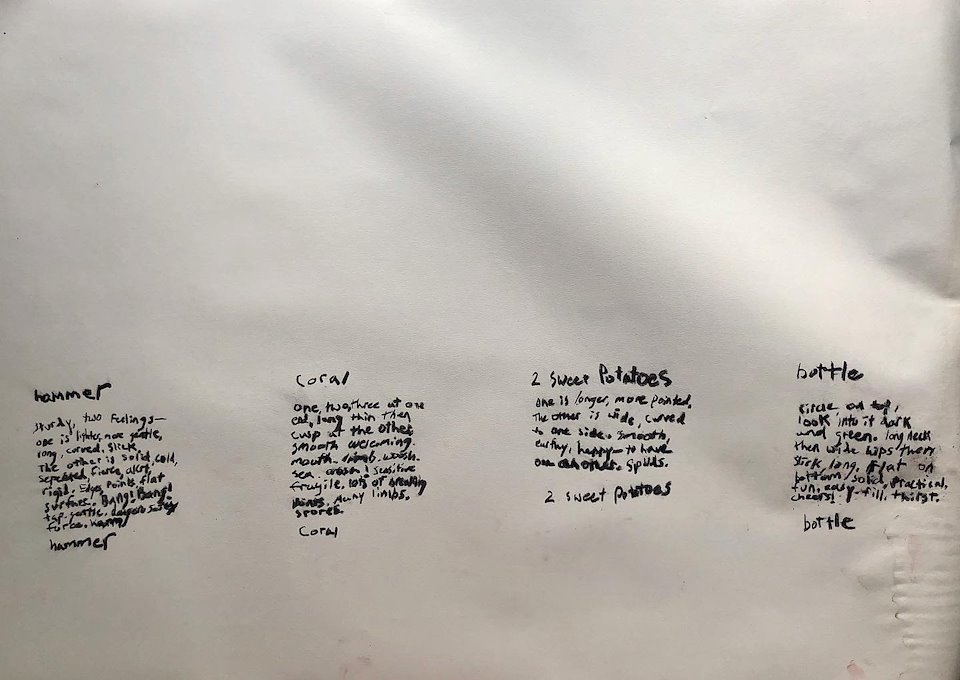 hammer
sturdy, two feelings—
one is lighter, more gentle,
long, curved, slick
The other is solid, cold,
separated, fierce, alert,
rigid. Edges, points, flat
surfaces. Bang! Bang!
tap.
force.
hammer
coral
one, two, three at one
end, long thin then
cusp at the other
smooth welcoming
mouth. wash.
sea. sensitive
fragile. lots of
Many limbs.
coral
2 sweet potatoes
one is longer, more pointed,
The other is wide, curved
to one side. smooth,
earthy, happy— to have
one another. spuds.
2 sweet potatoes
bottle
circle on top,
look into it dark
and green. long neck
then wide hips then
stick long. flat on
bottom, solid, practical,
fun, easy-fill. thirst.
cheers!
bottle